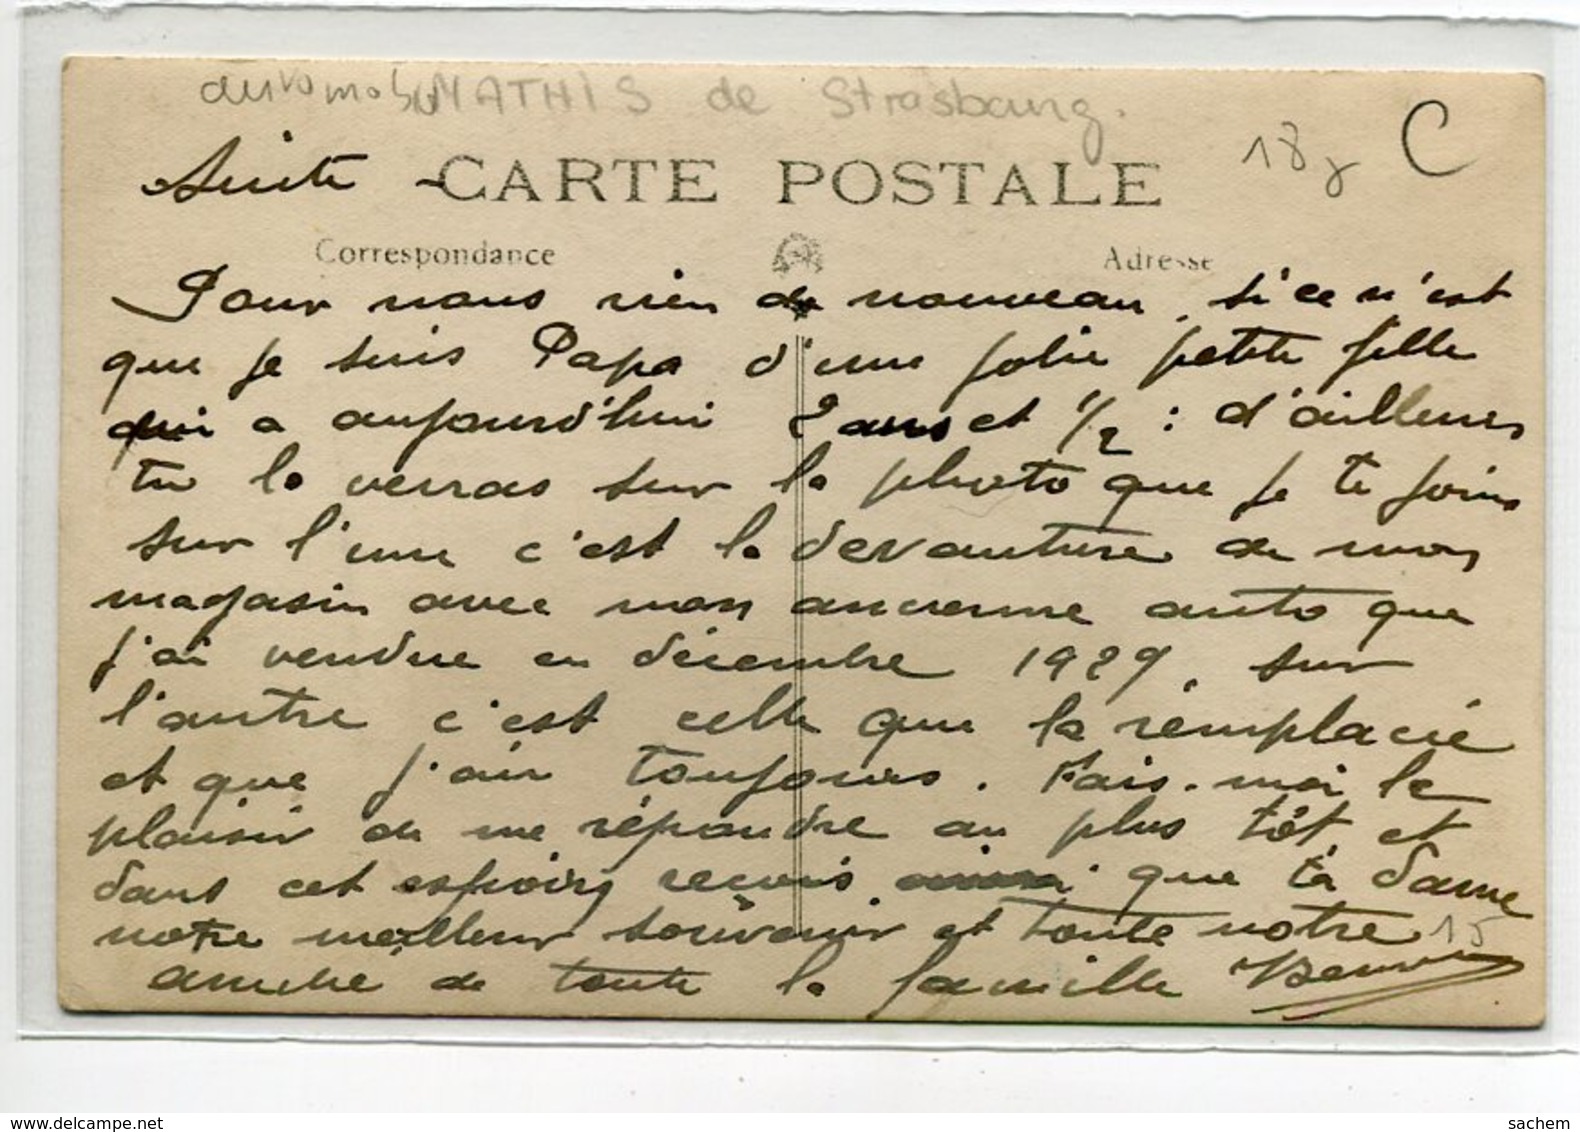 automobile MATHIS de Strasbourg.
18 C
Suite - CARTE POSTALE
Correspondance Adresse
Pour nous rien de nouveau, si ce n'est
que je suis Papa d'une jolie petite fille
qui a aujourd'hui 2 ans et 1/2 : d'ailleurs
tu la verras sur la photo que je te joins
sur l'une c'est la devanture de mon
magasin avec mon ancienne auto que
j'ai vendue en décembre 1929, sur
l'autre c'est celle que la remplacé
et que j'ai toujours. Fais-moi le
plaisir de me répondre au plus tôt et
dans cet espoir, reçois ainsi que ta dame
notre meilleur souvenir et toute notre 15
amitié de toute la famille
delcampe.net
sachem